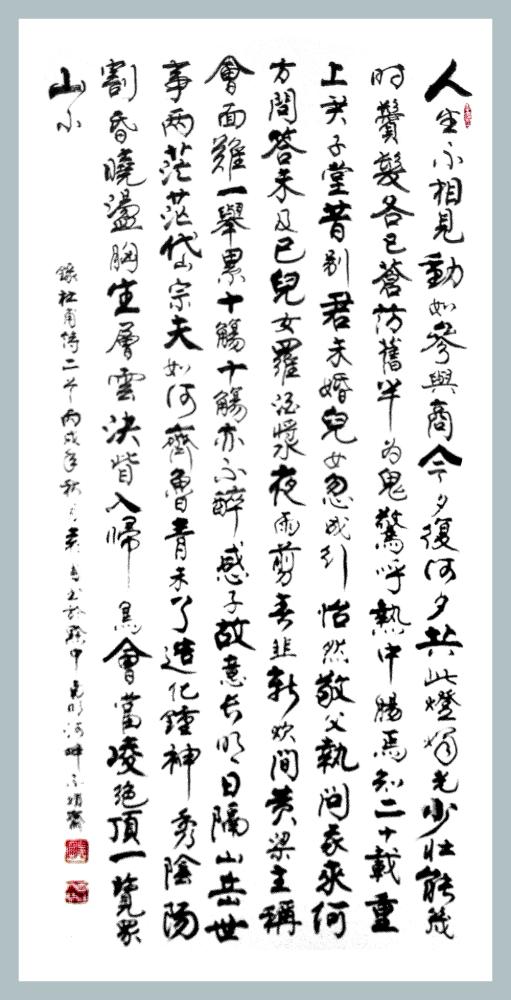 人生不相見動如參與商今夕復何夕共此燈燭光少壯能幾
時鬢髮各已蒼訪舊半為鬼驚呼熱中腸焉知二十載重
上君子堂昔別君未婚兒女忽成行怡然敬父執問我來何
方問答未及已兒女羅酒漿夜雨剪春韭新炊間黃粱主稱
會面難一舉累十觴十觴亦不醉感子故意長明日隔山岳世
事兩茫茫岱宗夫如何齊魯青未了造化鍾神秀陰陽
割昏曉盪胸生層雲決眥入歸鳥會當凌絕頂一覽眾
山小
錄杜甫詩二首丙戌年秋月